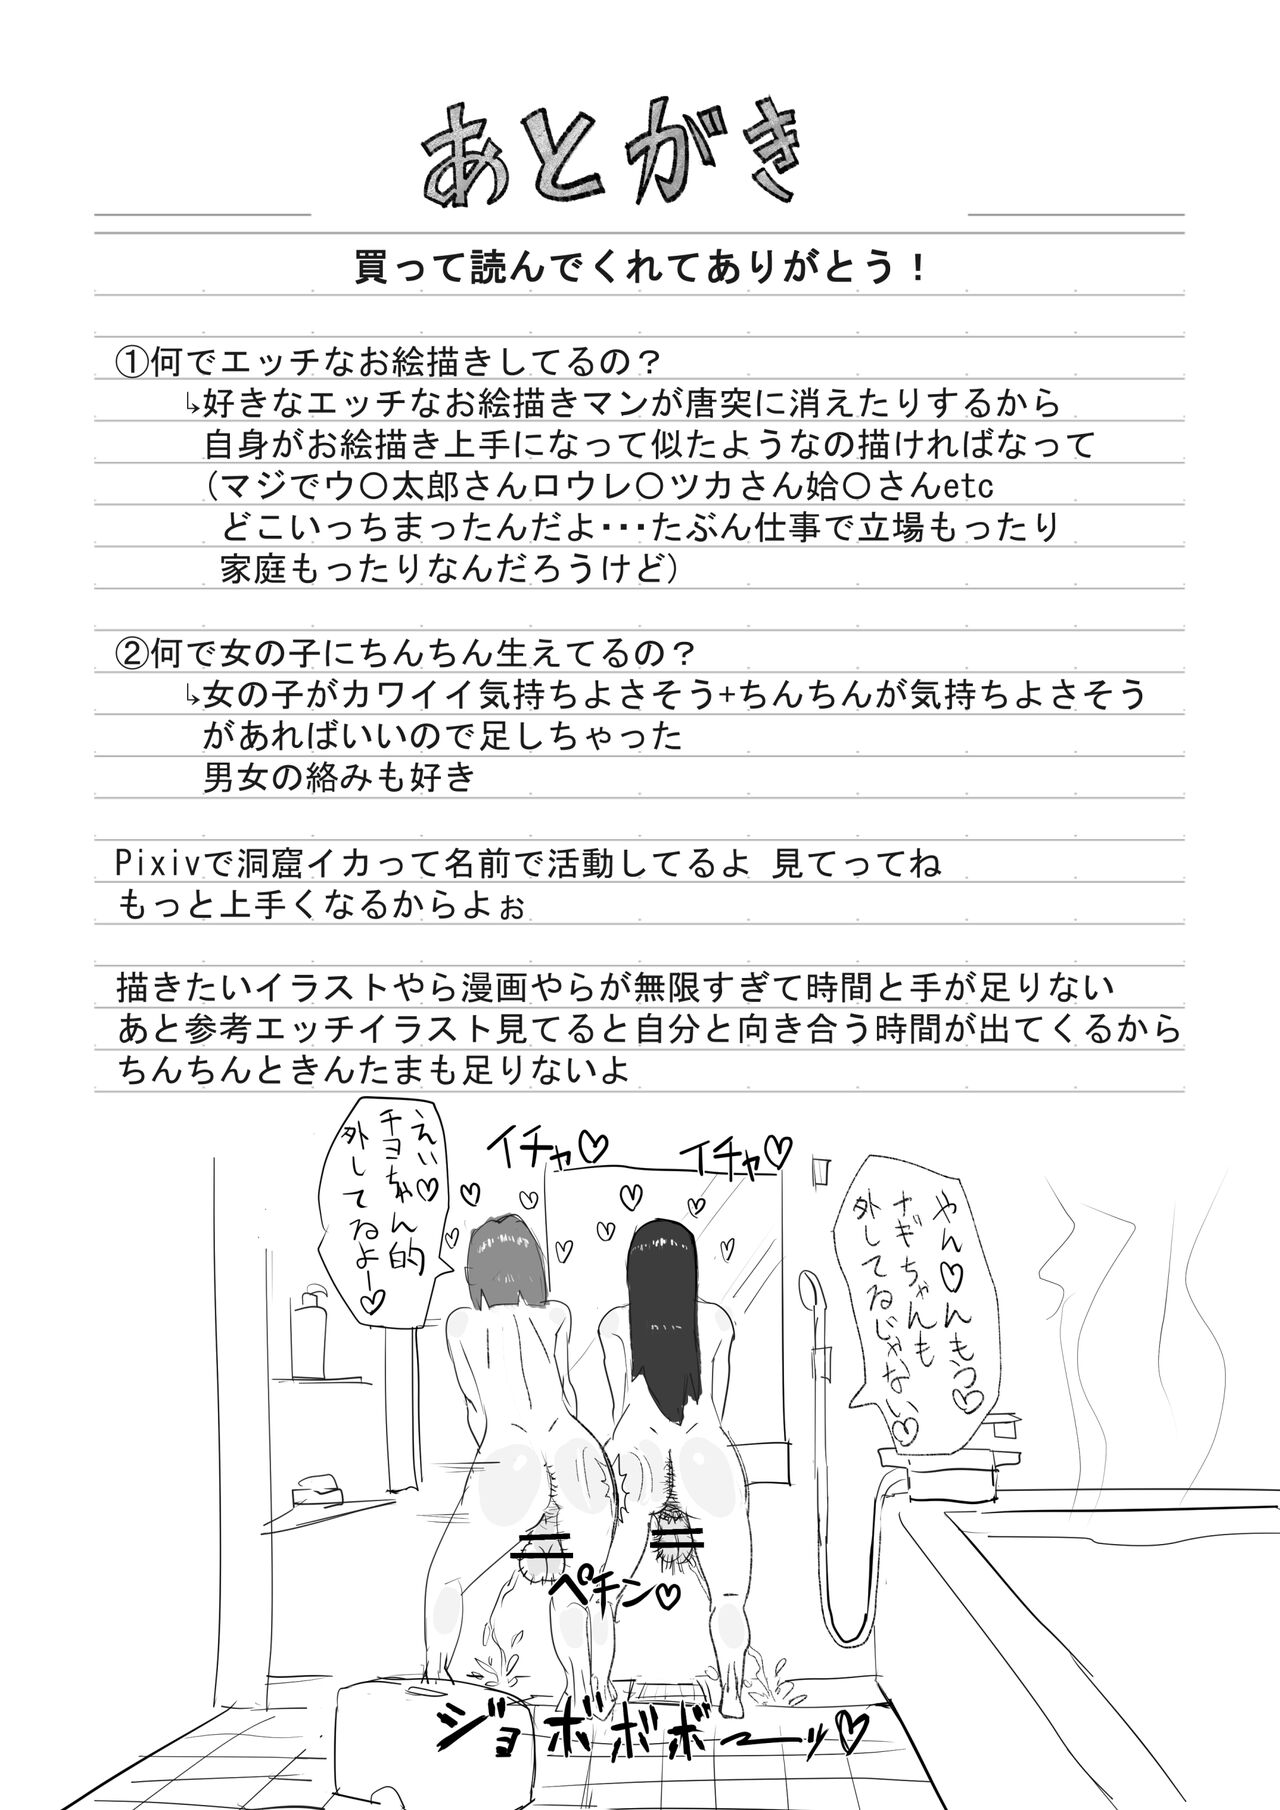 あとがき
買って読んでくれてありがとう！
①何でエッチなお絵描きしてるの？
↳好きなエッチなお絵描きマンが唐突に消えたりするから
自身がお絵描き上手になって似たようなの描ければなって
（マジでウ〇太郎さんロウレ〇ツカさん始〇さんetc
どこいっちまったんだよ・・・たぶん仕事で立場もったり
家庭もったりなんだろうけど）
②何で女の子にちんちん生えてるの？
↳女の子がカワイイ気持ちよさそう+ちんちんが気持ちよさそう
があればいいので足しちゃった
男女の絡みも好き
Pixivで洞窟イカって名前で活動してるよ 見てってね
もっと上手くなるからよぉ
描きたいイラストやら漫画やらが無限すぎて時間と手が足りない
あと参考エッチイラスト見てると自分と向き合う時間が出てくるから
ちんちんときんたまも足りないよ
イチャ♡
イチャ♡
えい♡
チヨちゃん的
外してるよー♡
やん♡んもう♡
ナギちゃんも
外してるじゃない♡
ペチン♡
ジョボボボーーッ♡